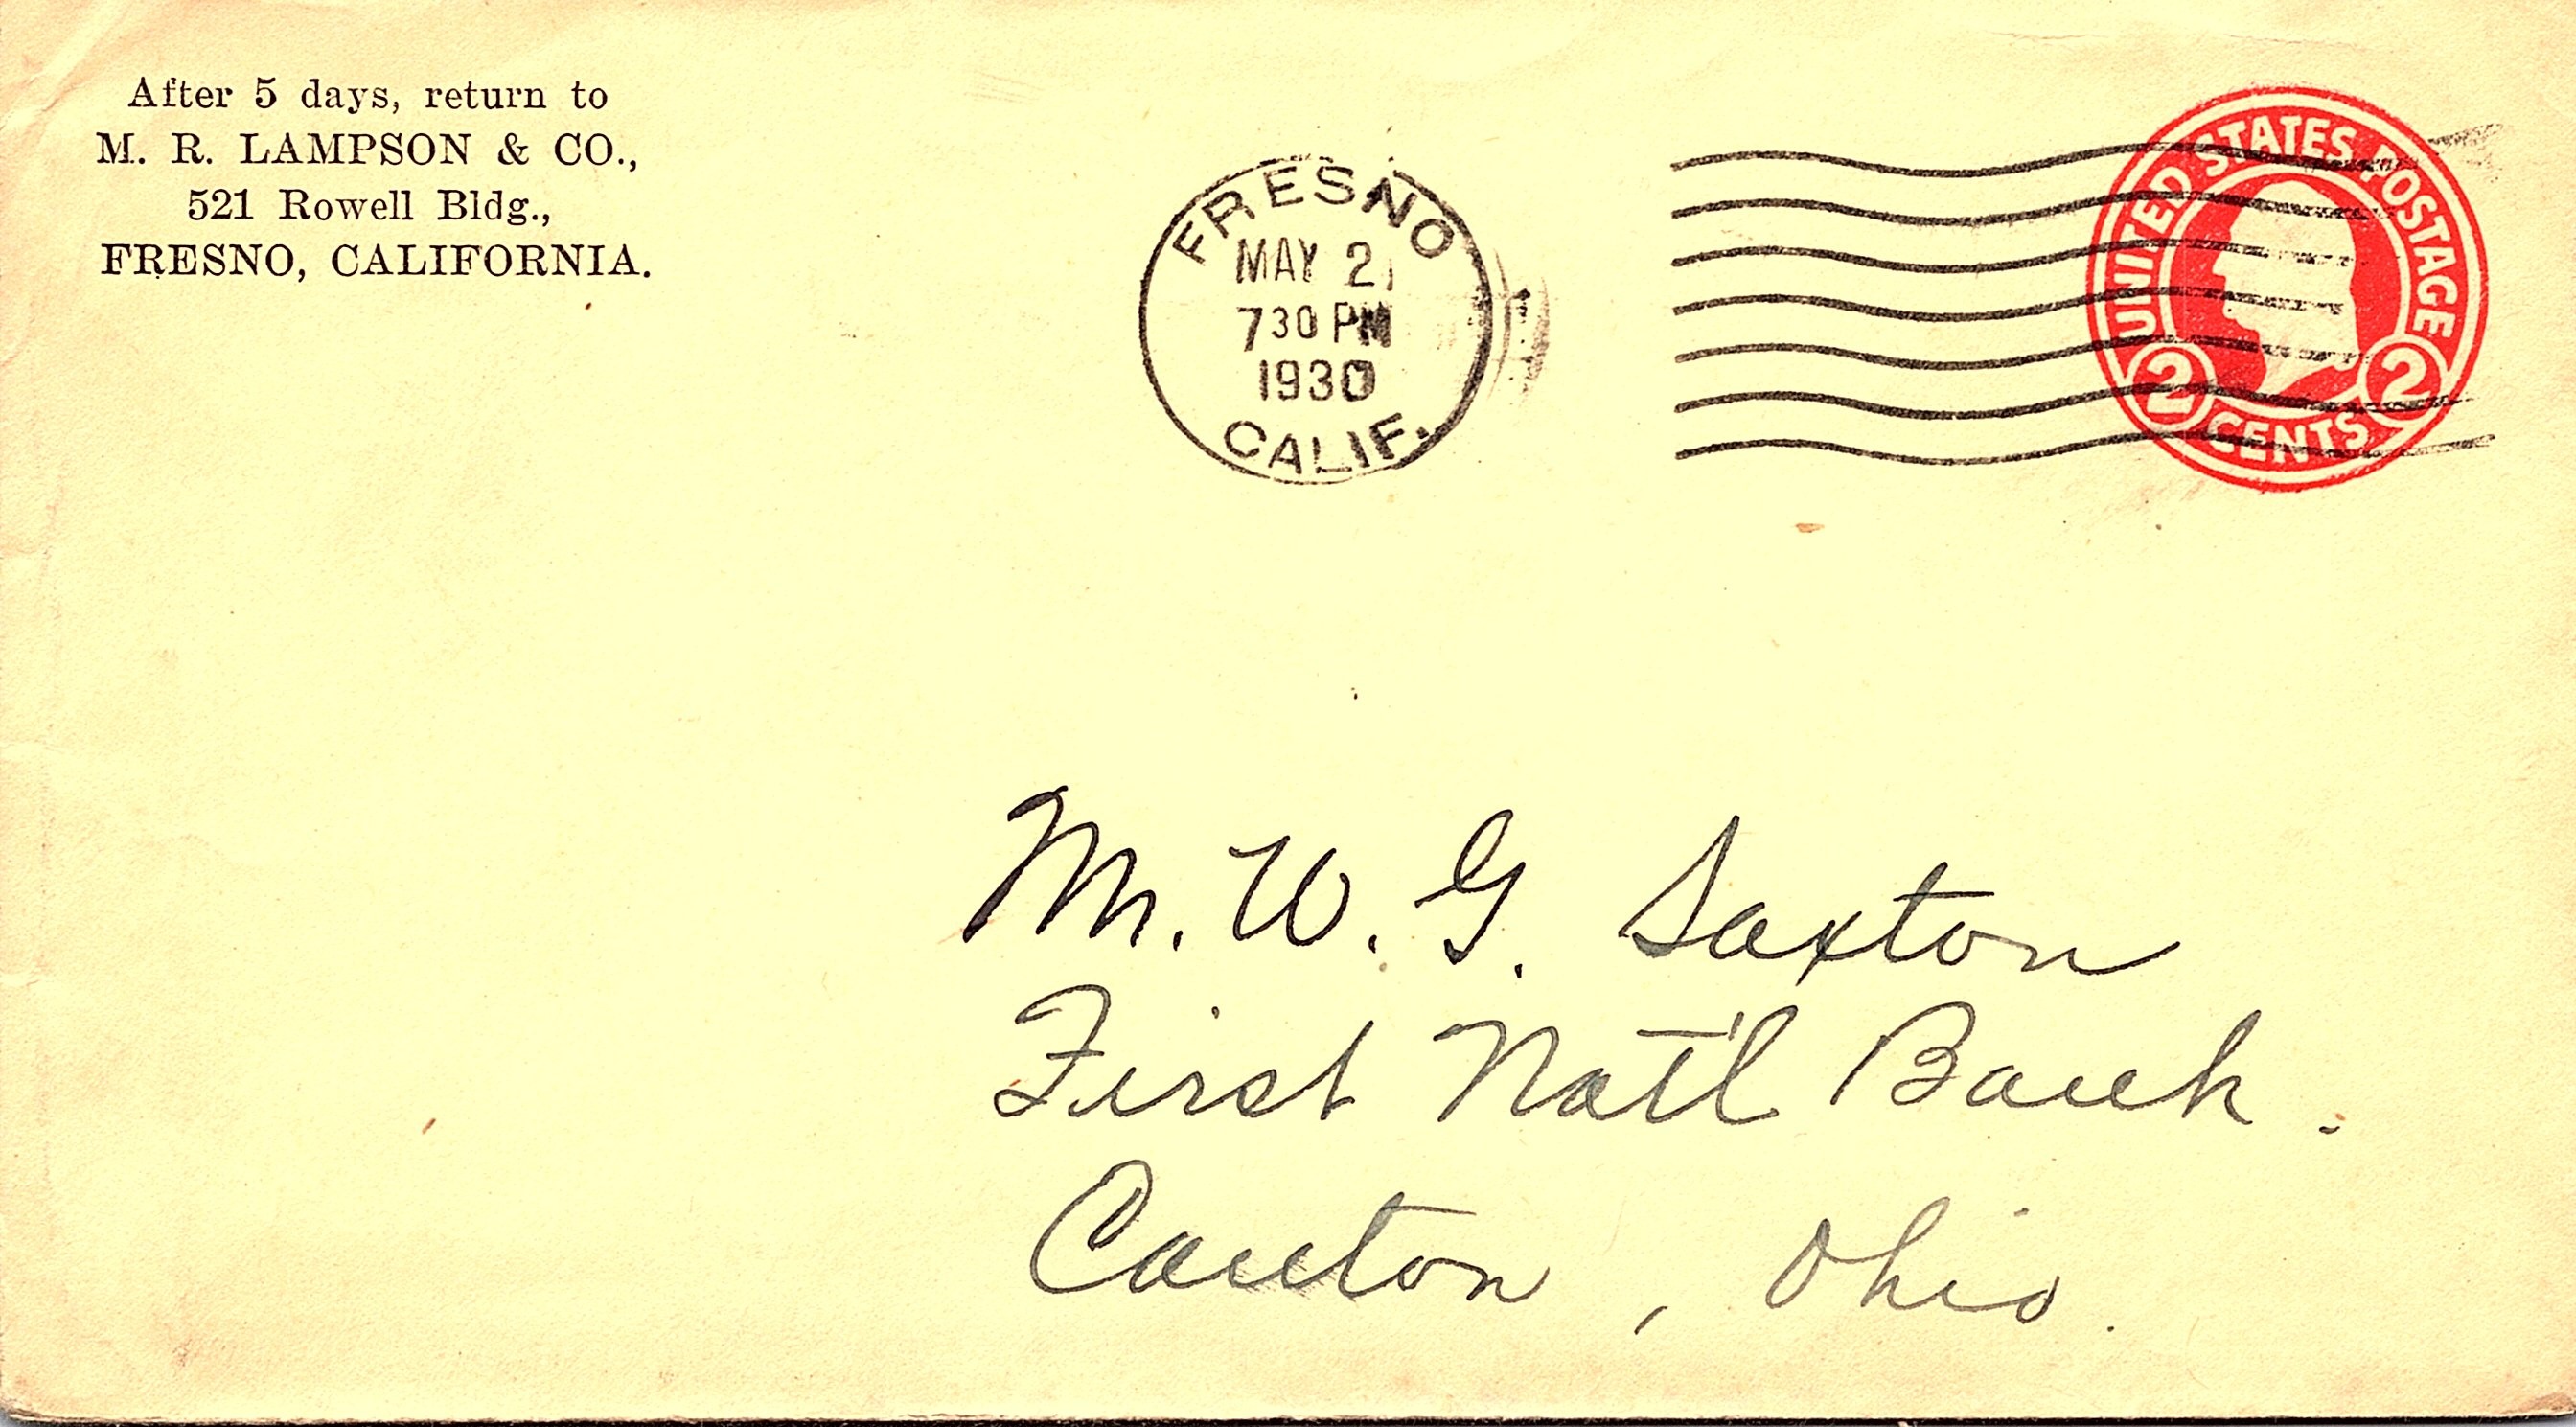 After 5 days, return to
M. R. LAMPSON & CO.,
521 Rowell Bldg.,
FRESNO, CALIFORNIA.
FRESNO
MAY 2
7 30 PM
1930
CALIF.
UNITED STATES POSTAGE
2 CENTS 2
Mr. W. G. Saxton
First Nat'l Bank.
Canton, Ohio.